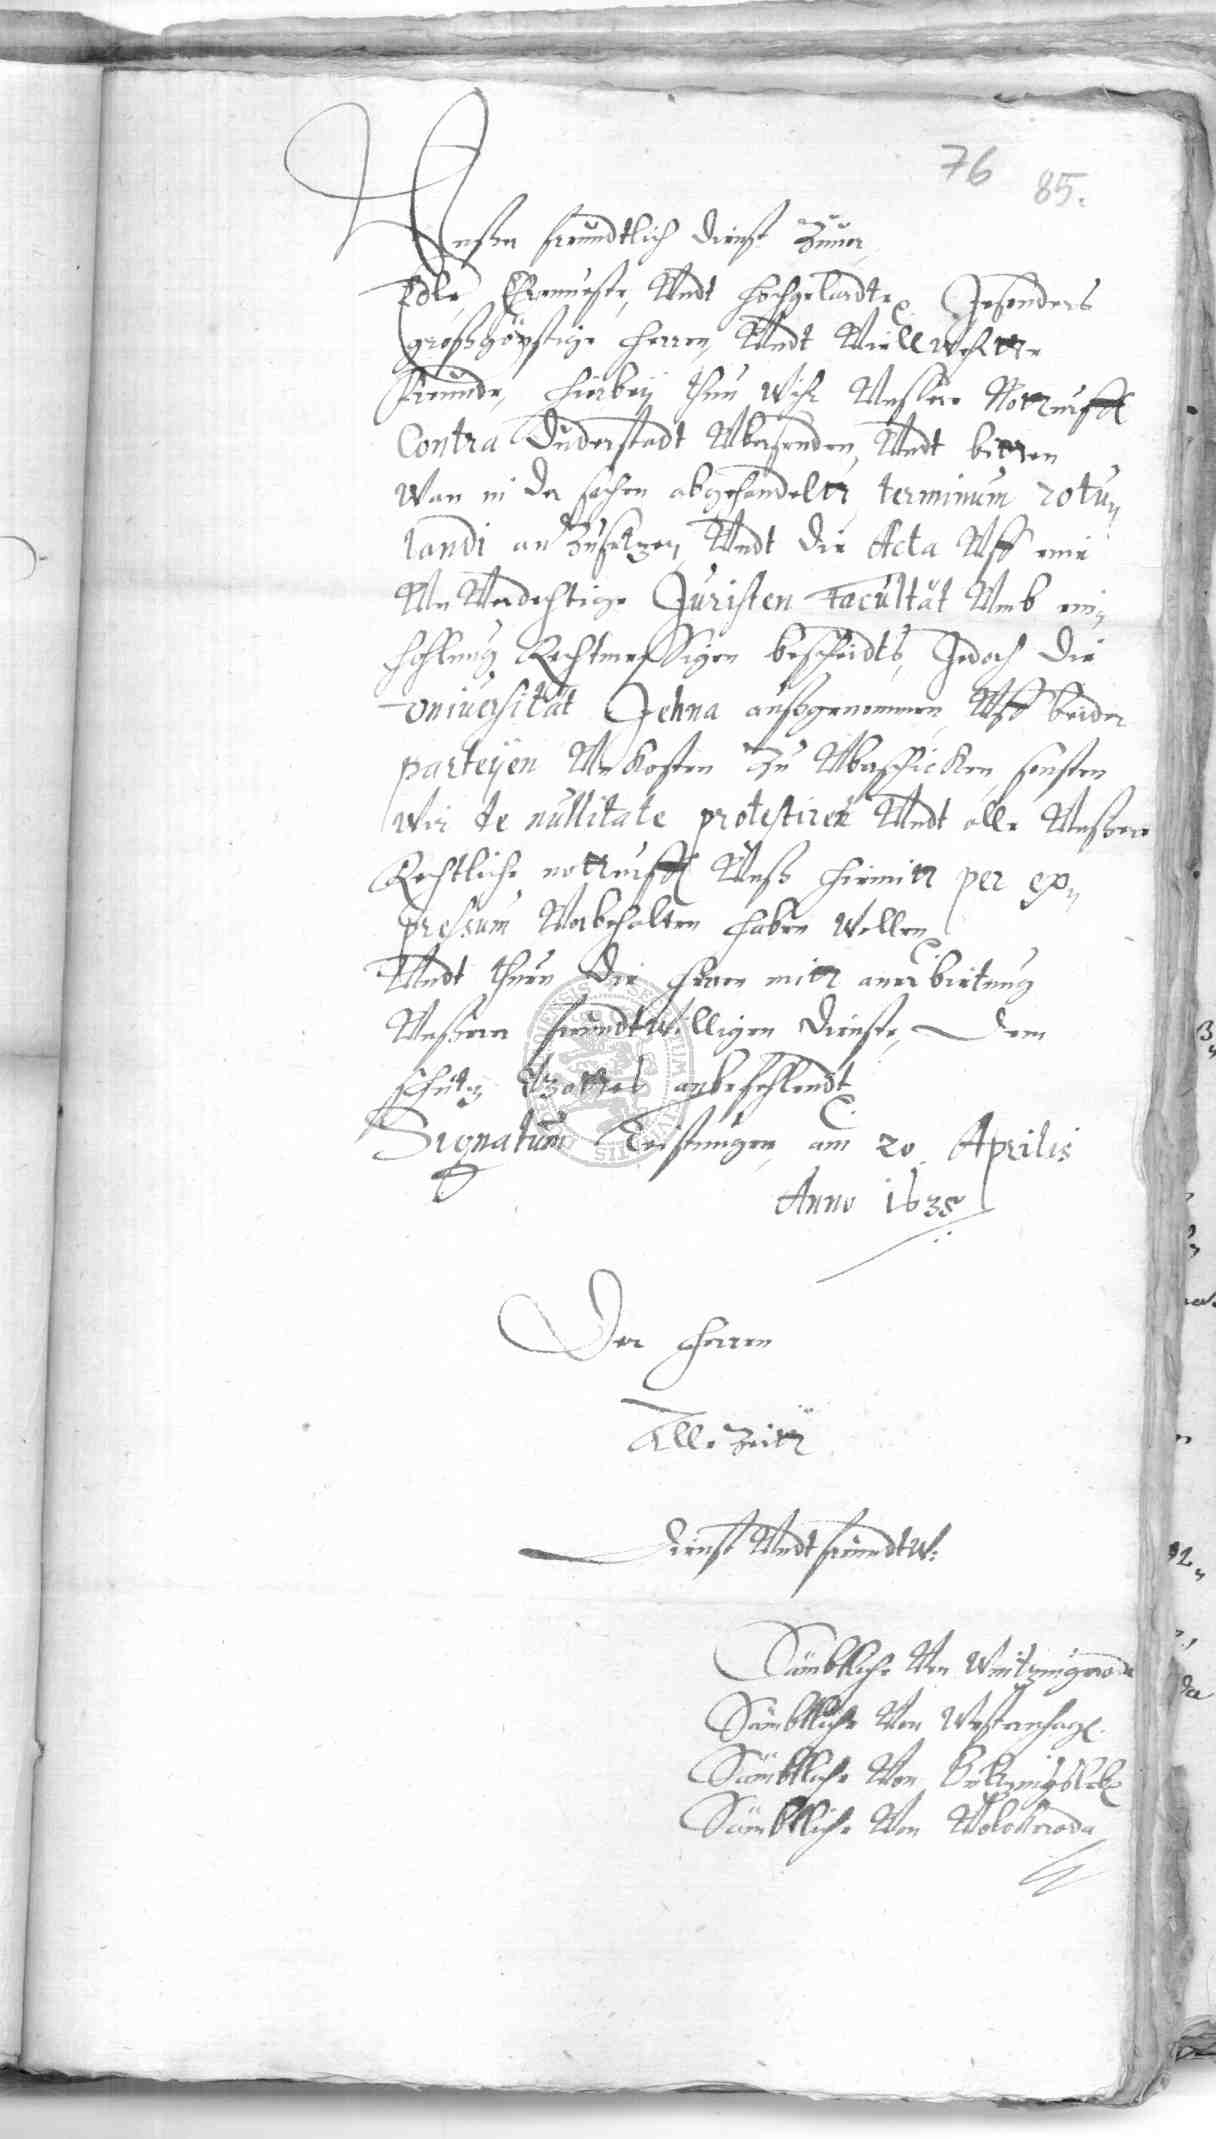 76
85.
Unßer freundtlich dienst zuuor
Edle, Ehrnueste, Undt hochgelardte, Jesonders
großgönstige herren, Undt Vielwehrtte
freunde, hierbeÿ thun wihr Unssere Notturfft
Contra Duderstadt Ubersenden, Undt bitten
Wan in der sachen abgehandeltt, terminum rotu„
landi an Zusetzen, Undt die Acta Uff eine
Un Verdechtige Juristen Facultät Umb ein„
hohlung Rechtmessigen bescheidts, Jedoch die
Vniuersität Jehna außgenommen, Uff beider
parteÿen Unkosten Zu Uberschicken, sonsten
wir de nullitate protestiren Undt alle Unßere
Rechtliche notturfft Unß hiermitt per ex„
pressum Vorbehalten haben wollen
Undt thuen die herrn mitt anerbietung
Unßerer freundtwilligen dienste, dem
schutz Gottes anbefehlendt
Signatum Teistungen, am 20 Aprilis
Anno 1638
Der Herren
Alle Zeitt
Dienst Undt freundtw:
Sämbtliche Von Wintzingeroda
Sämbtliche Von Westernhagen
Sämbtliche Von Bültzingsleben
Sämbtliche Von